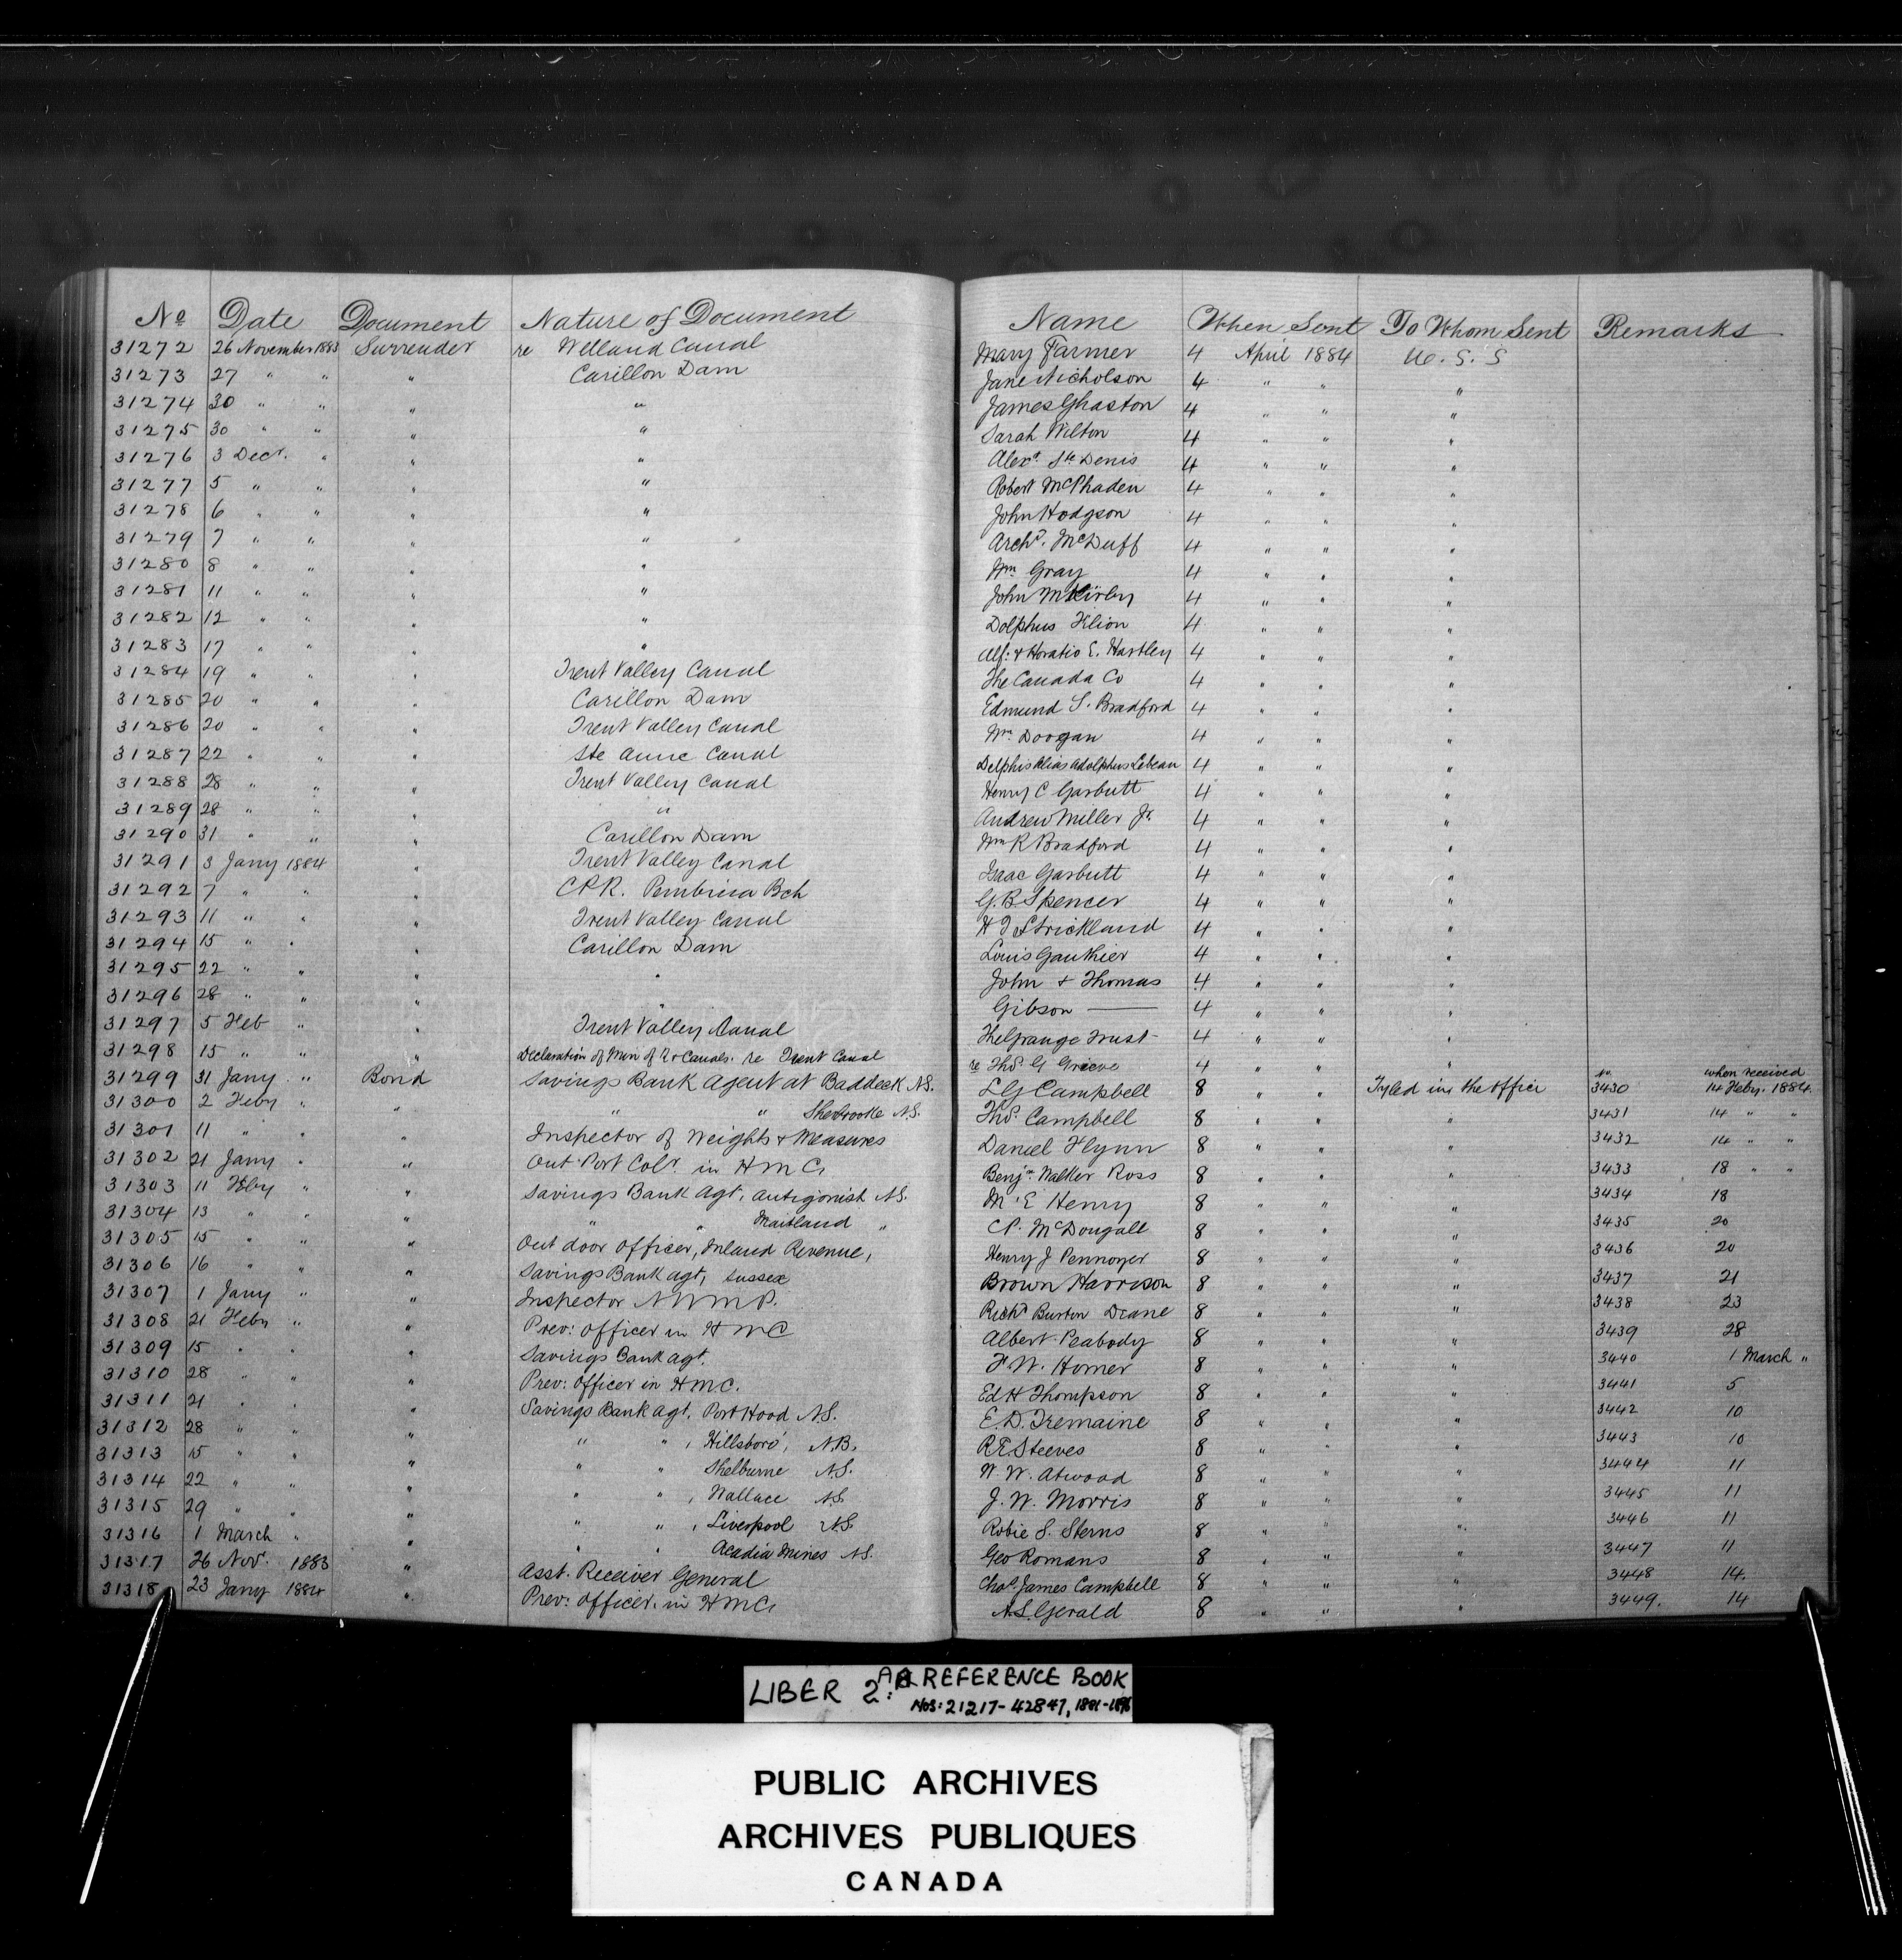 No Date Document Nature of Document Name When Sent To Whom Sent Remarks
31272 26 November 1883 Surrender re Welland Canal Mary Farmer 4 April 1884 U. S. S
31273 27 " " " Carillon Dam Jane Nicholson 4 " " "
31274 30 " " " " James Ghaston 4 " " "
31275 30 " " " " Sarah Wilton 4 " " "
31276 3 Decr. " " " Alexr. Ste Denis 4 " " "
31277 5 " " " " Robert McPhaden 4 " " "
31278 6 " " " " John Hodgson 4 " " "
31279 7 " " " " Archd. McDuff 4 " " "
31280 8 " " " " Wm Gray 4 " " "
31281 11 " " " " John McKirby 4 " " "
31282 12 " " " " Dolphus Filion 4 " " "
31283 17 " " " " Alf: & Horatio E. Hartley 4 " " "
31284 19 " " " Trent Valley Canal The Canada Co 4 " " "
31285 20 " " " Carillon Dam Edmund S. Bradford 4 " " "
31286 20 " " " Trent Valley Canal Wm Doogan 4 " " "
31287 22 " " " Ste Anne Canal Delphis Alias Adolphus Lebeau 4 " " "
31288 28 " " " Trent Valley Canal Henry C Garbutt 4 " " "
31289 28 " " " " Andrew Miller Jr. 4 " " "
31290 31 " " " Carillon Dam Wm R Bradford 4 " " "
31291 3 Jany 1884 " Trent Valley Canal Isaac Garbutt 4 " " "
31292 7 " " " C.P.R. Pembina Bch G. B Spencer 4 " " "
31293 11 " " " Trent Valley Canal H T Strickland 4 " " "
31294 15 " " " Carillon Dam Louis Gauthier 4 " " "
31295 22 " " " " John & Thomas 4 " " "
31296 28 " " " " Gibson — 4 " " "
31297 5 Feb " " Trent Valley Canal The Grange Trust 4 " " "
31298 15 " " " Declaration of Min of R & Canals. re Trent Canal re Thos. G Grieve 4 " " "
No. when received
31299 31 Jany " Bond Savings Bank Agent at Baddeck N.S. L G Campbell 8 " " Fyled in the office 3430 14 Feby. 1884.
31300 2 Feby " " " " Sherbrooke N.S. Thos. Campbell 8 " " " 3431 14 " "
31301 11 " " " Inspector of Weights & Measures Daniel Flynn 8 " " " 3432 14 " "
31302 21 Jany " " Out Port Colr. in H M C, Benjn. Walker Ross 8 " " " 3433 18 " "
31303 11 Feby " " Savings Bank Agt, Antigonish N.S. M. E Henry 8 " " " 3434 18
31304 13 " " " " " Maitland " C.P. McDougall 8 " " " 3435 20
31305 15 " " " Out door Officer, Inland Revenue, Henry J Pennoyer 8 " " " 3436 20
31306 16 " " " Savings Bank agt, Sussex Brown Harrison 8 " " " 3437 21
31307 1 Jany " " Inspector N W M P. Richd Burton Deane 8 " " " 3438 23
31308 21 Feby " " Prev: Officer in H M C Albert Peabody 8 " " " 3439 28
31309 15 " " " Savings Bank agt. F. W. Homer 8 " " " 3440 1 March "
31310 28 " " " Prev: Officer in H M C. Ed H Thompson 8 " " " 3441 5
31311 21 " " " Savings Bank agt. Port Hood N.S. E. D. Tremaine 8 " " " 3442 10
31312 28 " " " " " , Hillsboro', N.B. R.E. Steeves 8 " " " 3443 10
31313 15 " " " " " Shelburne N.S. N. W. Atwood 8 " " " 3444 11
31314 22 " " " " " , Wallace N.S. J. W. Morris 8 " " " 3445 11
31315 29 " " " " " , Liverpool N.S. Robie S. Sterns 8 " " " 3446 11
31316 1 March " " " " Acadia Mines N.S. Geo Romans 8 " " " 3447 11
31317 26 Nov. 1883 " Asst. Receiver General Chas. James Campbell 8 " " " 3448 14.
31318 23 Jany 1884 " Prev: Officer. in H M C, A. S. Gerald 8 " " " 3449. 14
LIBER 2: REFERENCE BOOK
NOS: 21217-42847, 1881-1896
PUBLIC ARCHIVES
ARCHIVES PUBLIQUES
CANADA